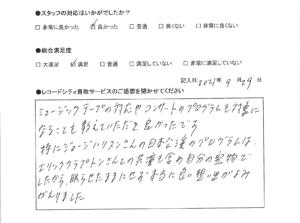 ●スタッフの対応はいかがでしたか?
□ 非常に良かった ☑ 良かった □ 普通 □ 良くない □ 非常に良くない
●総合満足度
□ 大満足 ☑ 満足 □ 普通 □ 満足していない □ 非常に満足していない
記入日 2021年 9月 29日
●レコードシティ買取サービスのご感想を聞かせてください
ミュージックテープの対応やコンサートのプログラムも対象に
なることも教えていただき良かったです
特にジョージ・ハリスンさんの日本公演のプログラムは、
エリッククラプトンさんとの共演も含め自分の宝物で
したから、眠らせたままにせず本当に良い想い出がよみ
がえりました